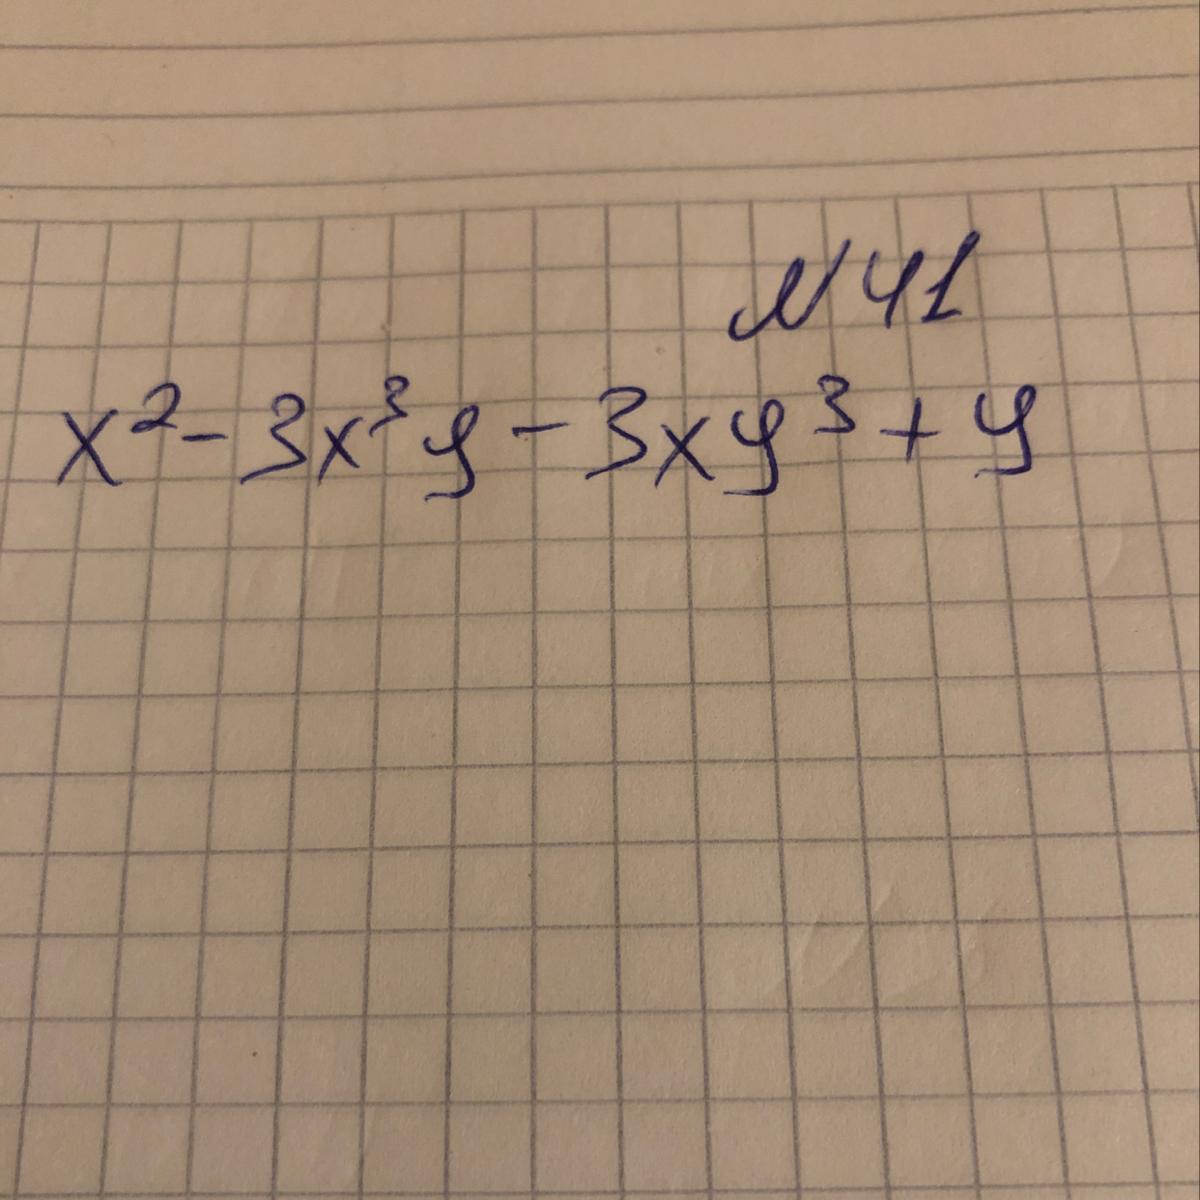 N 41
x² - 3x³y - 3xy³ + y